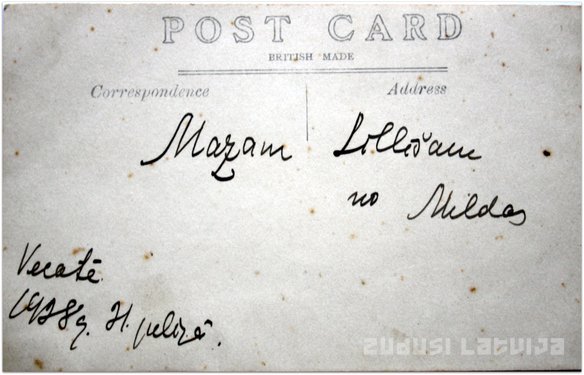 POST CARD
BRITISH MADE
Correspondence
Address
Mazam Lillišam
no Mildas
Vecatē
1928g. 21. julijā.
ZUDUSI LATVIJA